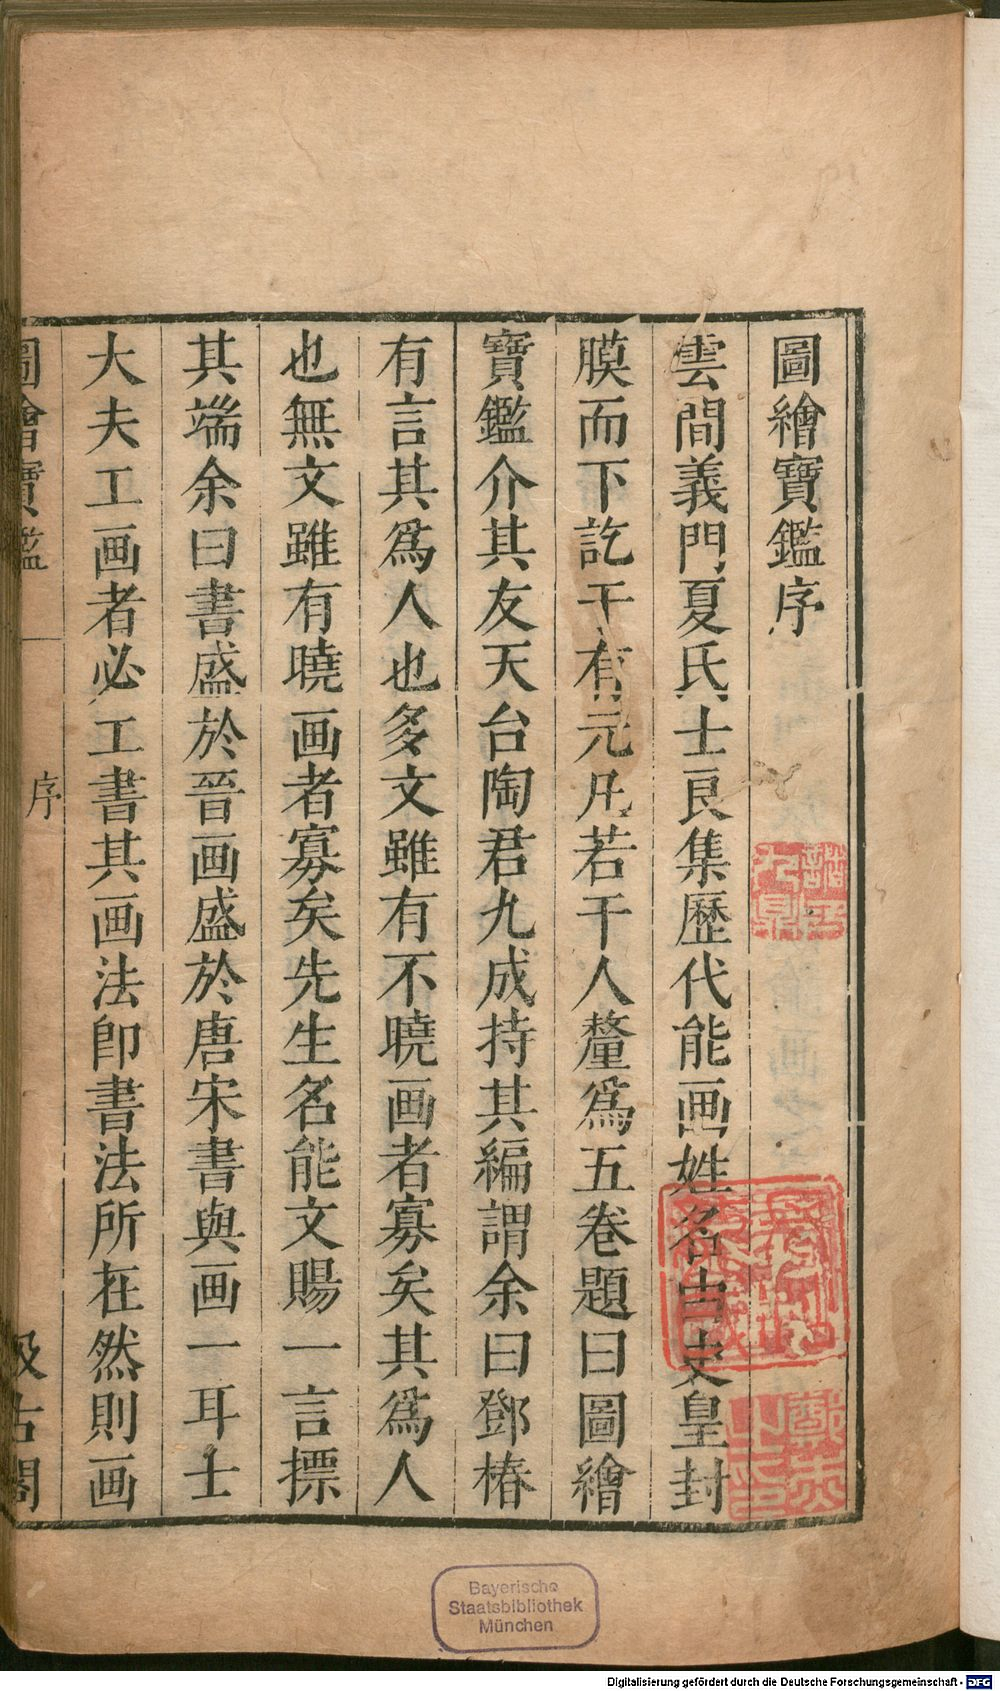 圖繪寶鑑序
雲間義門夏氏士良集歷代能画姓名由史皇封
膜而下訖于有元凡若干人釐爲五卷題曰圖繪
寶鑑介其友天台陶君九成持其編謂余曰鄧椿
有言其爲人也多文雖有不曉画者寡矣其爲人
也無文雖有曉画者寡矣先生名能文賜一言摽
其端余曰書盛於晉画盛於唐宋書與画一耳士
大夫工画者必工書其画法卽書法所在然則画
圖繪寶鑑 序 汲古閣
Bayerische
Staatsbibliothek
München
Digitalisierung gefördert durch die Deutsche Forschungsgemeinschaft - DFG